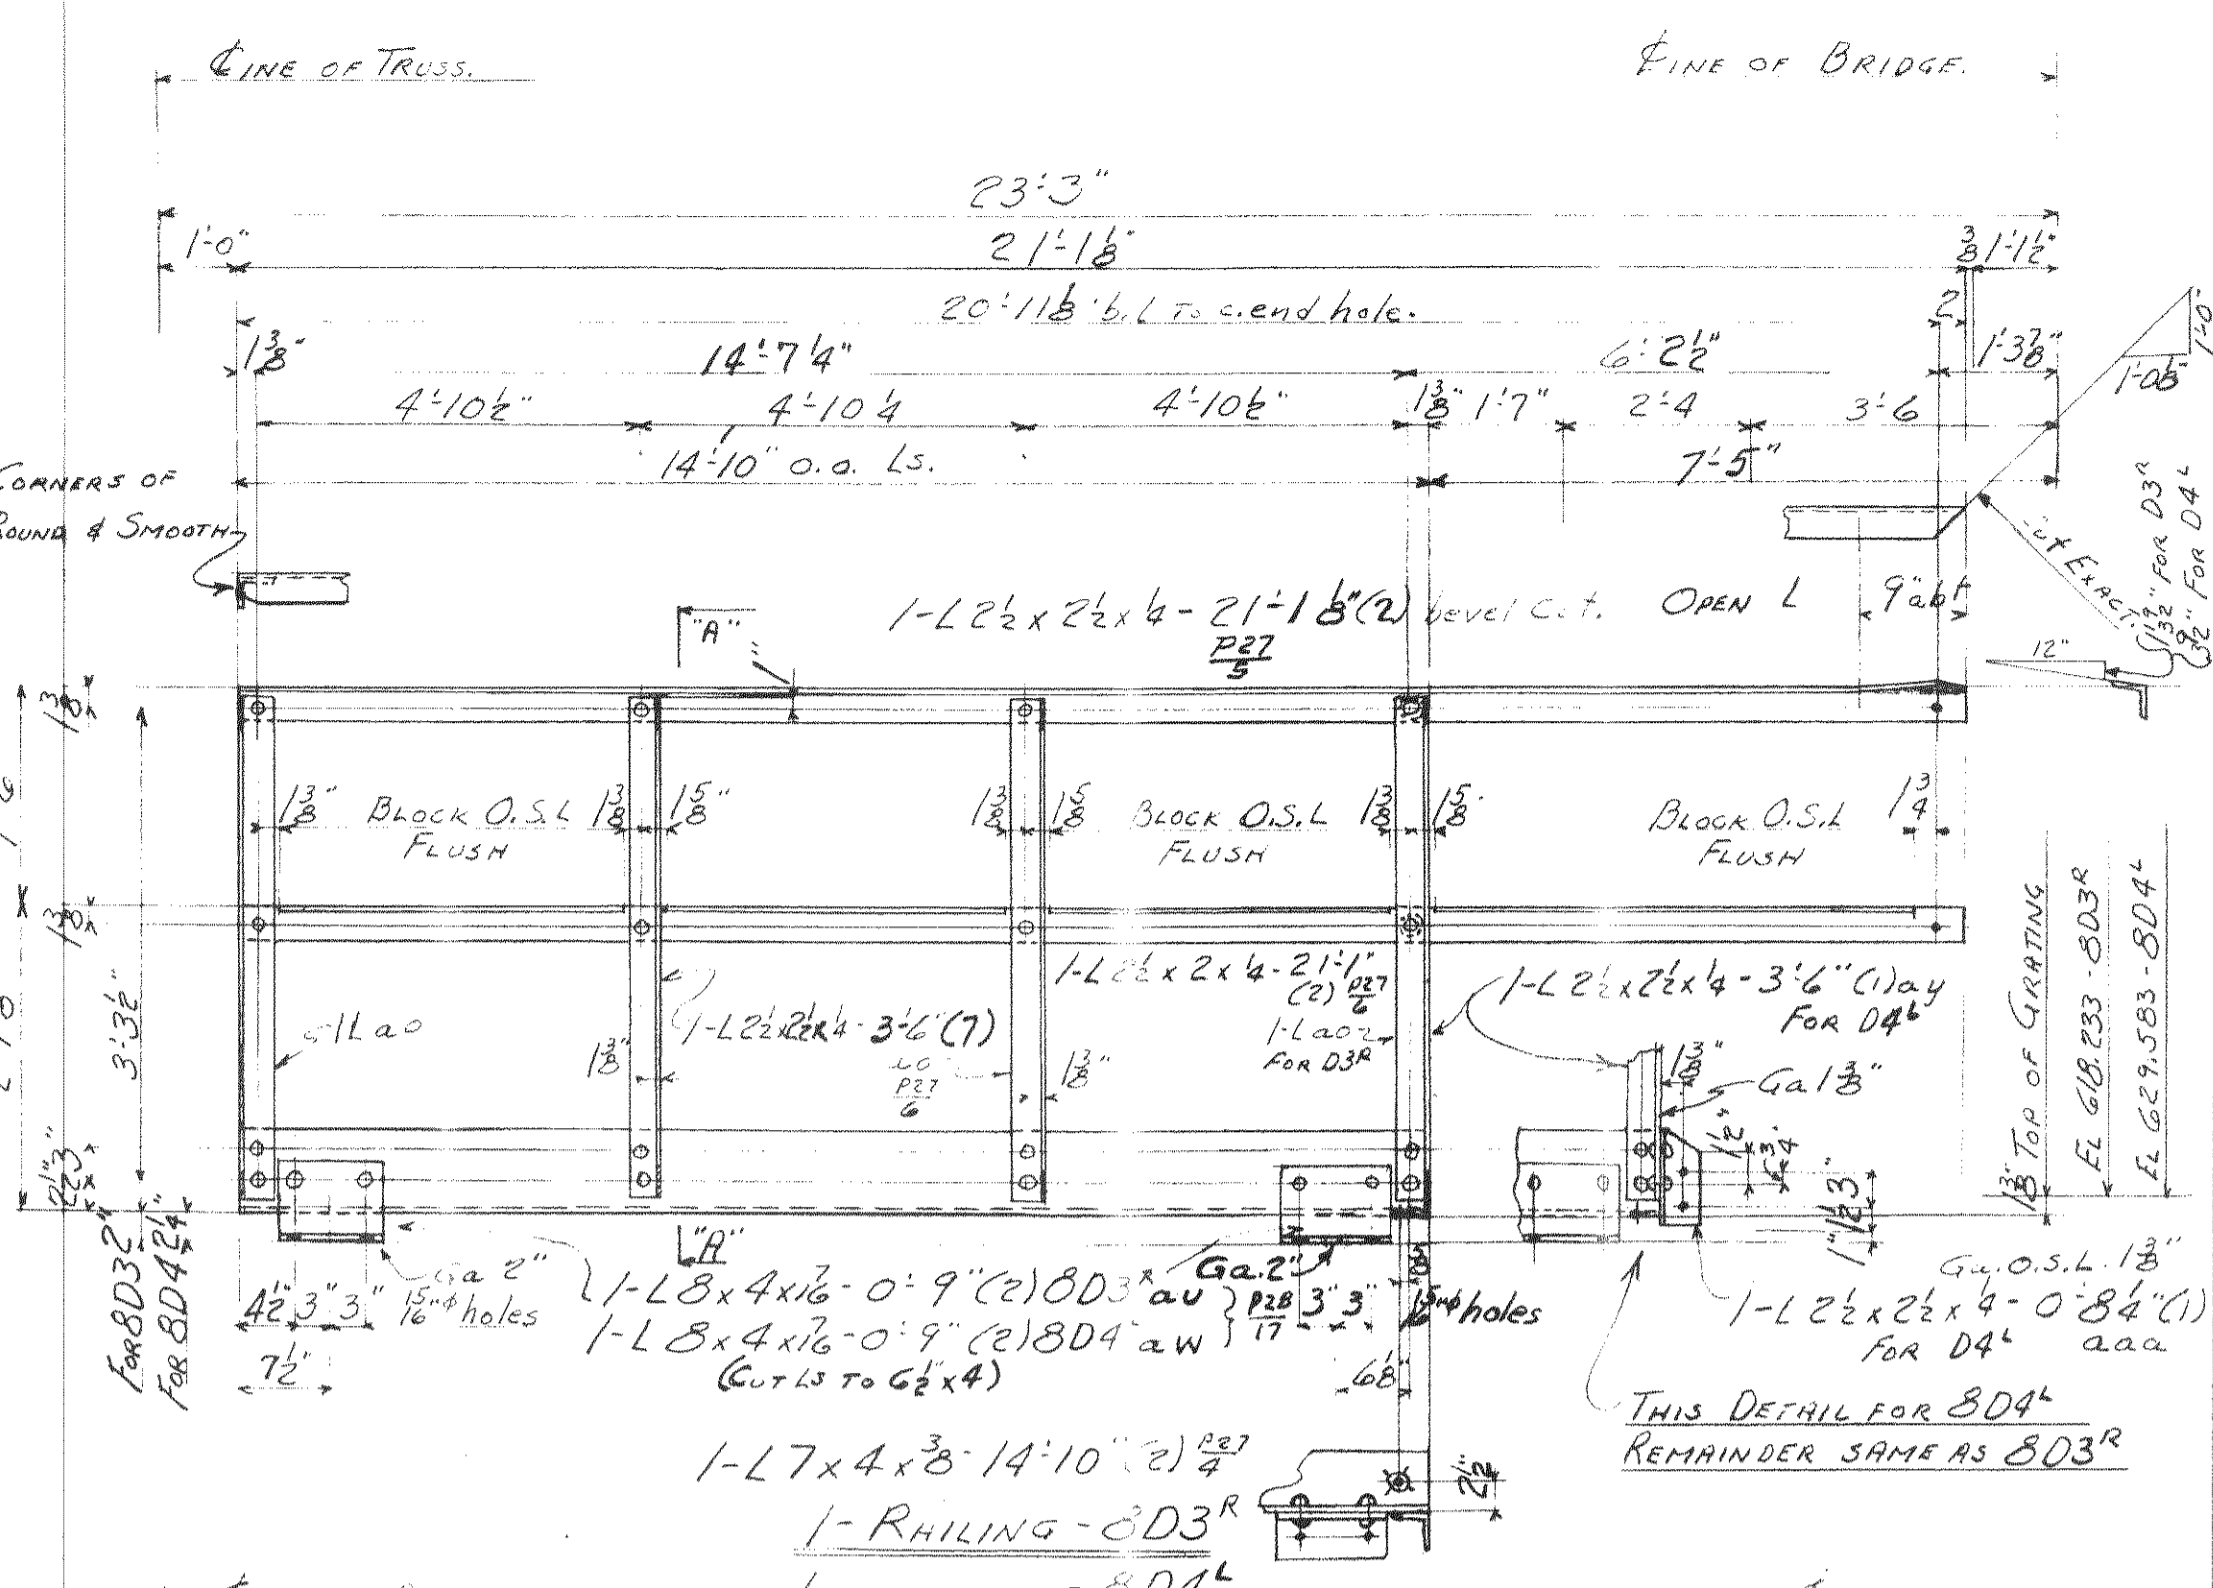 ℄ LINE OF TRUSS.
℄ LINE OF BRIDGE.
23'-3"
1'-0"
21'-1 1/8"
3/8
1'-1 1/2"
20'-11 1/8" b.L To c.end hole.
2
1 3/8"
14'-7 1/4"
6'-2 1/2"
1'-3 7/8"
1'-0"
1'-0 1/8"
4'-10 1/2"
4'-10 1/4
4'-10 1/2"
1 3/8"
1'-7"
2'-4
3'-6
14'-10" o.a. Ls.
7'-5"
CORNERS OF
ROUND & SMOOTH
EXACT.
1 9/32" FOR D3R
9/32" FOR D4L
12"
1-L 2 1/2 x 2 1/2 x 1/4 - 21'-1 1/8" (2) bevel Cut.
OPEN L
9" abt
P27/5
"A"
1 3/8
1 3/8"
BLOCK O.S.L
FLUSH
1 3/8
1 5/8"
1 3/8
1 5/8
BLOCK O.S.L
FLUSH
1 3/8
1 5/8"
BLOCK O.S.L
FLUSH
1 3/4
1 3/8
3'-3 1/2"
1 L ao
1-L 2 1/2 x 2 1/2 x 1/4 - 3'-6" (7)
ao
P27/6
1 3/8"
1 3/8"
1-L 2 1/2 x 2 x 1/4 - 21'-1"
(2) P27/6
1-L ao
FOR D3R
1-L 2 1/2 x 2 1/2 x 1/4 - 3'-6" (1) ay
FOR D4L
1 3/8"
Ga 1 3/8"
1 1/2"
6 3/4
3"
1 1/2
1"
1 3/8" TOP OF GRATING
EL 618.233 - 8D3R
EL 629.583 - 8D4L
2 1/2"
3"
FOR 8D3 2"
FOR 8D4 2 1/4"
4 1/2" 3" 3"
7 1/2"
Ga 2"
15/16" ϕ holes
"A"
1-L 8 x 4 x 7/16 - 0'-9" (2) 8D3R au
1-L 8 x 4 x 7/16 - 0'-9" (2) 8D4L aw
P28/17
(CUT LS TO 6 1/2 x 4)
Ga. 2"
3" 3"
3/8
15/16" ϕ holes
6 1/8"
Ga. O.S.L. 1 3/8"
1-L 2 1/2 x 2 1/2 x 1/4 - 0'-8 1/4" (1)
FOR D4L aaa
THIS DETAIL FOR 8D4L
REMAINDER SAME AS 8D3R
1-L 7 x 4 x 3/8 - 14'-10" (2) P27/4
2 1/2"
1- RAILING - 8D3R
1 - 8D4L